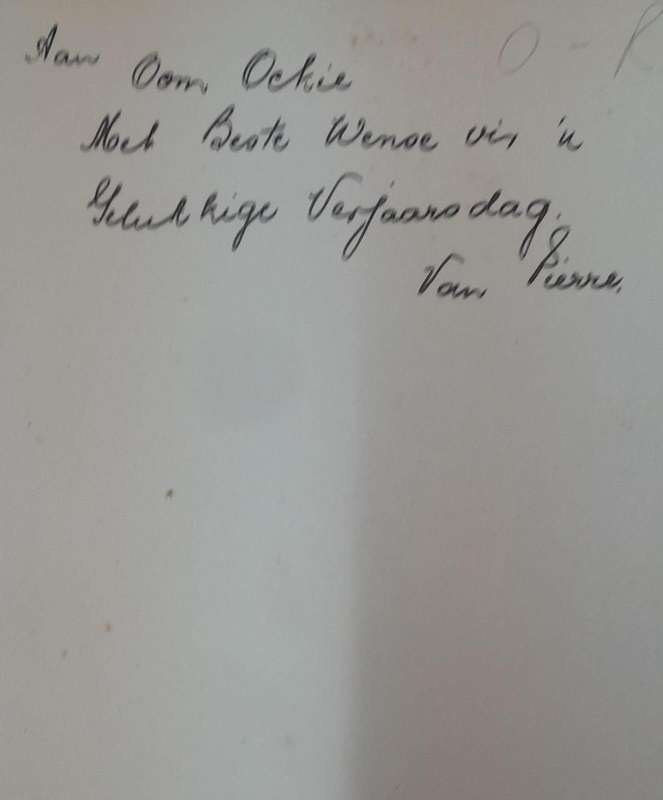 Aan Oom Ockie
Met Beste Wense vir 'n
Gelukkige Verjaarsdag.
Van Pierre.